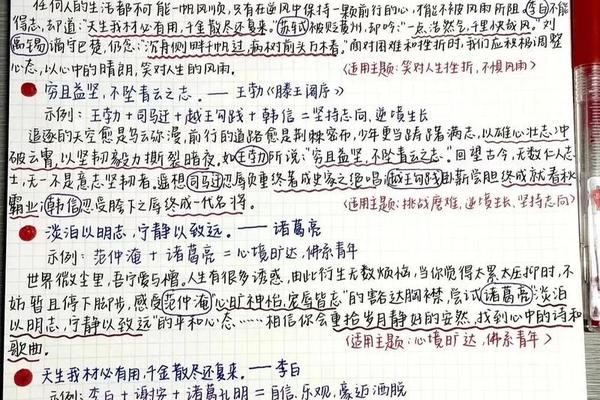 任何人的生活都不可能一帆风顺，只有在逆风中保持一颗前行的心，才能不被风雨所阻。李白不能
得志，却道："天生我材必有用，千金散尽还复来。"苏轼被贬黄州，却吟："一点浩然气，千里快哉风。"刘
禹锡谪守巴楚，仍念："沉舟侧畔千帆过，病树前头万木春。"面对困难和挫折时，我们应积极调整
心态，以心中的晴朗，笑对人生的风雨。(适用主题：笑对人生挫折，不惧风雨)
穷且益坚，不坠青云之志。——王勃《滕王阁序》
示例：王勃+司马迁+越王勾践+韩信=坚持志向，逆境生长
追逐的天空愈是乌云弥漫，前行的道路愈是荆棘密布，少年更当踌躇满志，以雄心壮志冲
破云霄，以坚韧毅力撕裂暗夜。如王勃所说："穷且益坚，不坠青云之志。"回望古今，无数仁人志
士，无一不是意志坚韧者，遥想司马迁忍辱负重终著成史家之绝唱；越王勾践卧薪尝胆终成就春秋
霸业；韩信忍受胯下之辱终成一代名将。(适用主题：挑战磨难，逆境生长，坚持志向)
淡泊以明志，宁静以致远。——诸葛亮
示例：范仲淹+诸葛亮=心境旷达，佛系青年
世界微尘里，吾宁爱与憎。人生有很多诱惑，由此衍生无数烦恼，当你觉得太累太压抑时，不
妨暂且停下脚步，感受范仲淹"心旷神怡，宠辱皆忘"的豁达胸襟，尝试诸葛亮"淡泊
以明志，宁静以致远"的平和心态……相信你会重拾岁月静好的安然，找到心中的诗和
歌曲。(适用主题：心境旷达，佛系青年)
天生我材必有用，千金散尽还复来。——李白
示例：李白+谢安+诸葛孔明=自信、乐观，豪迈洒脱